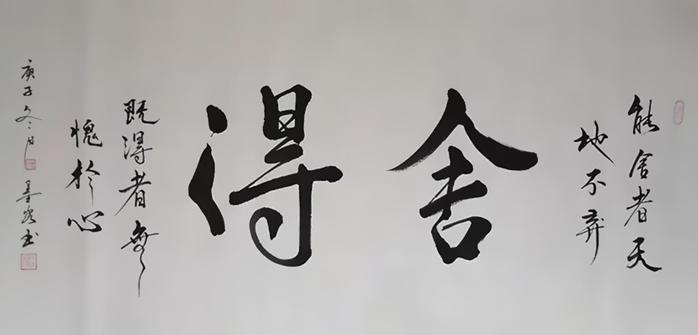 能舍者天
地不弃
舍得
既得者無
愧於心
庚子冬月